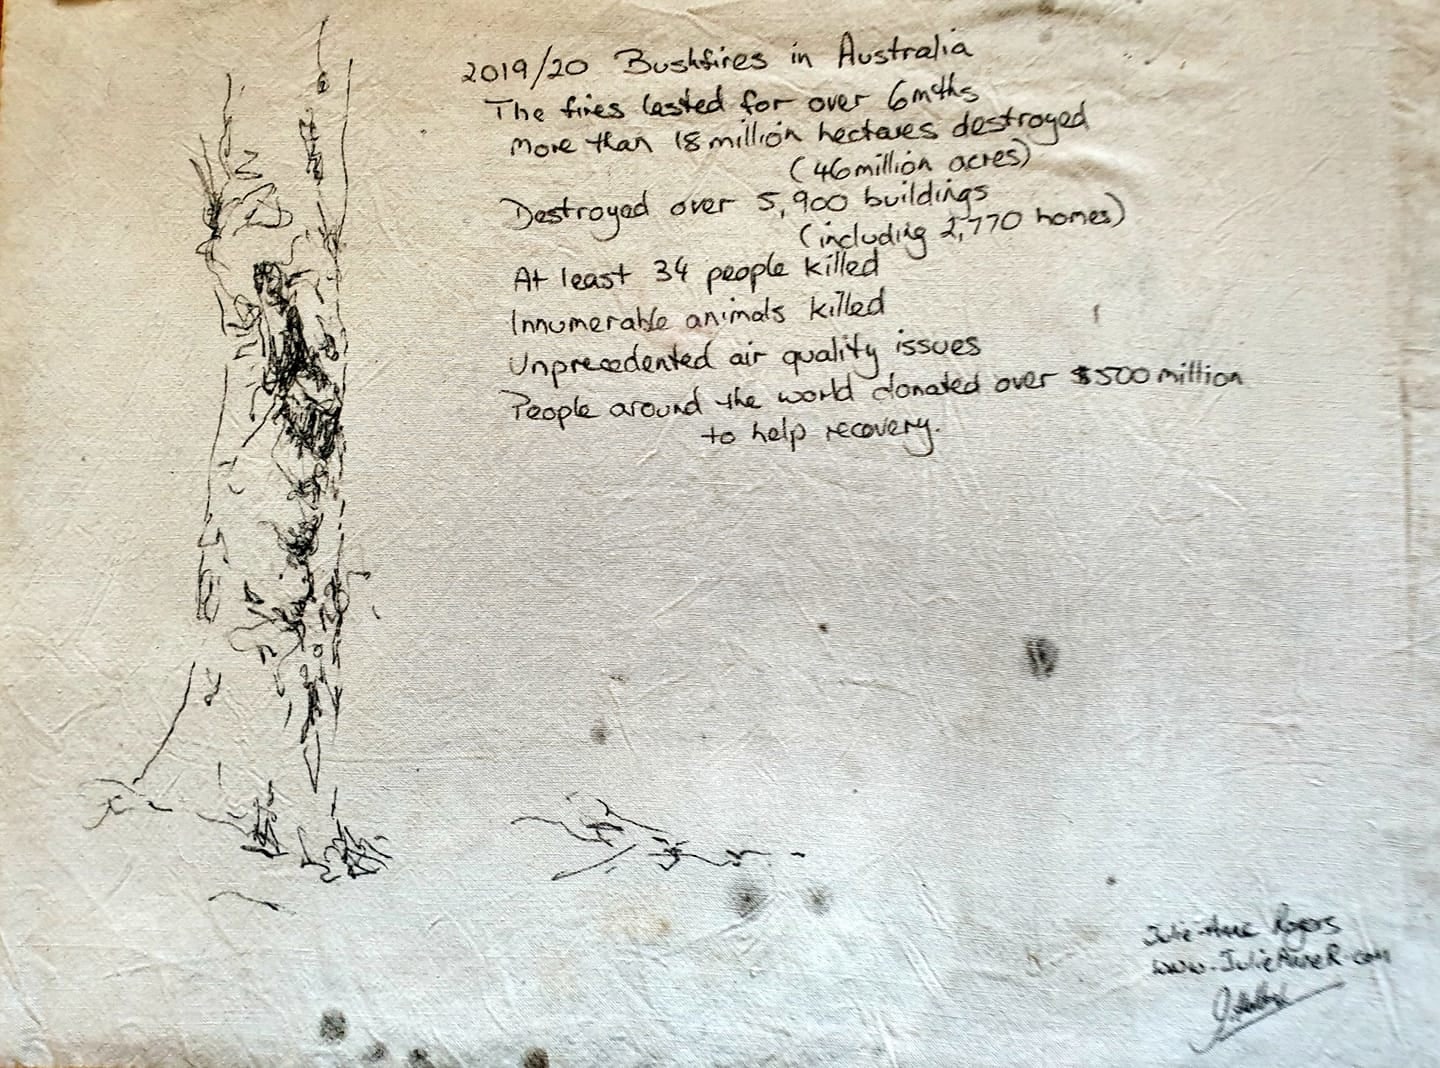 2019/20 Bushfires in Australia
The fires lasted for over 6mths
more than 18 million hectares destroyed
(46 million acres)
Destroyed over 5,900 buildings
(including 2,770 homes)
At least 34 people killed
Innumerable animals killed
Unprecedented air quality issues
People around the world donated over $500 million
to help recovery.
Julie-Anne Rogers
www.JulieAnneR.com